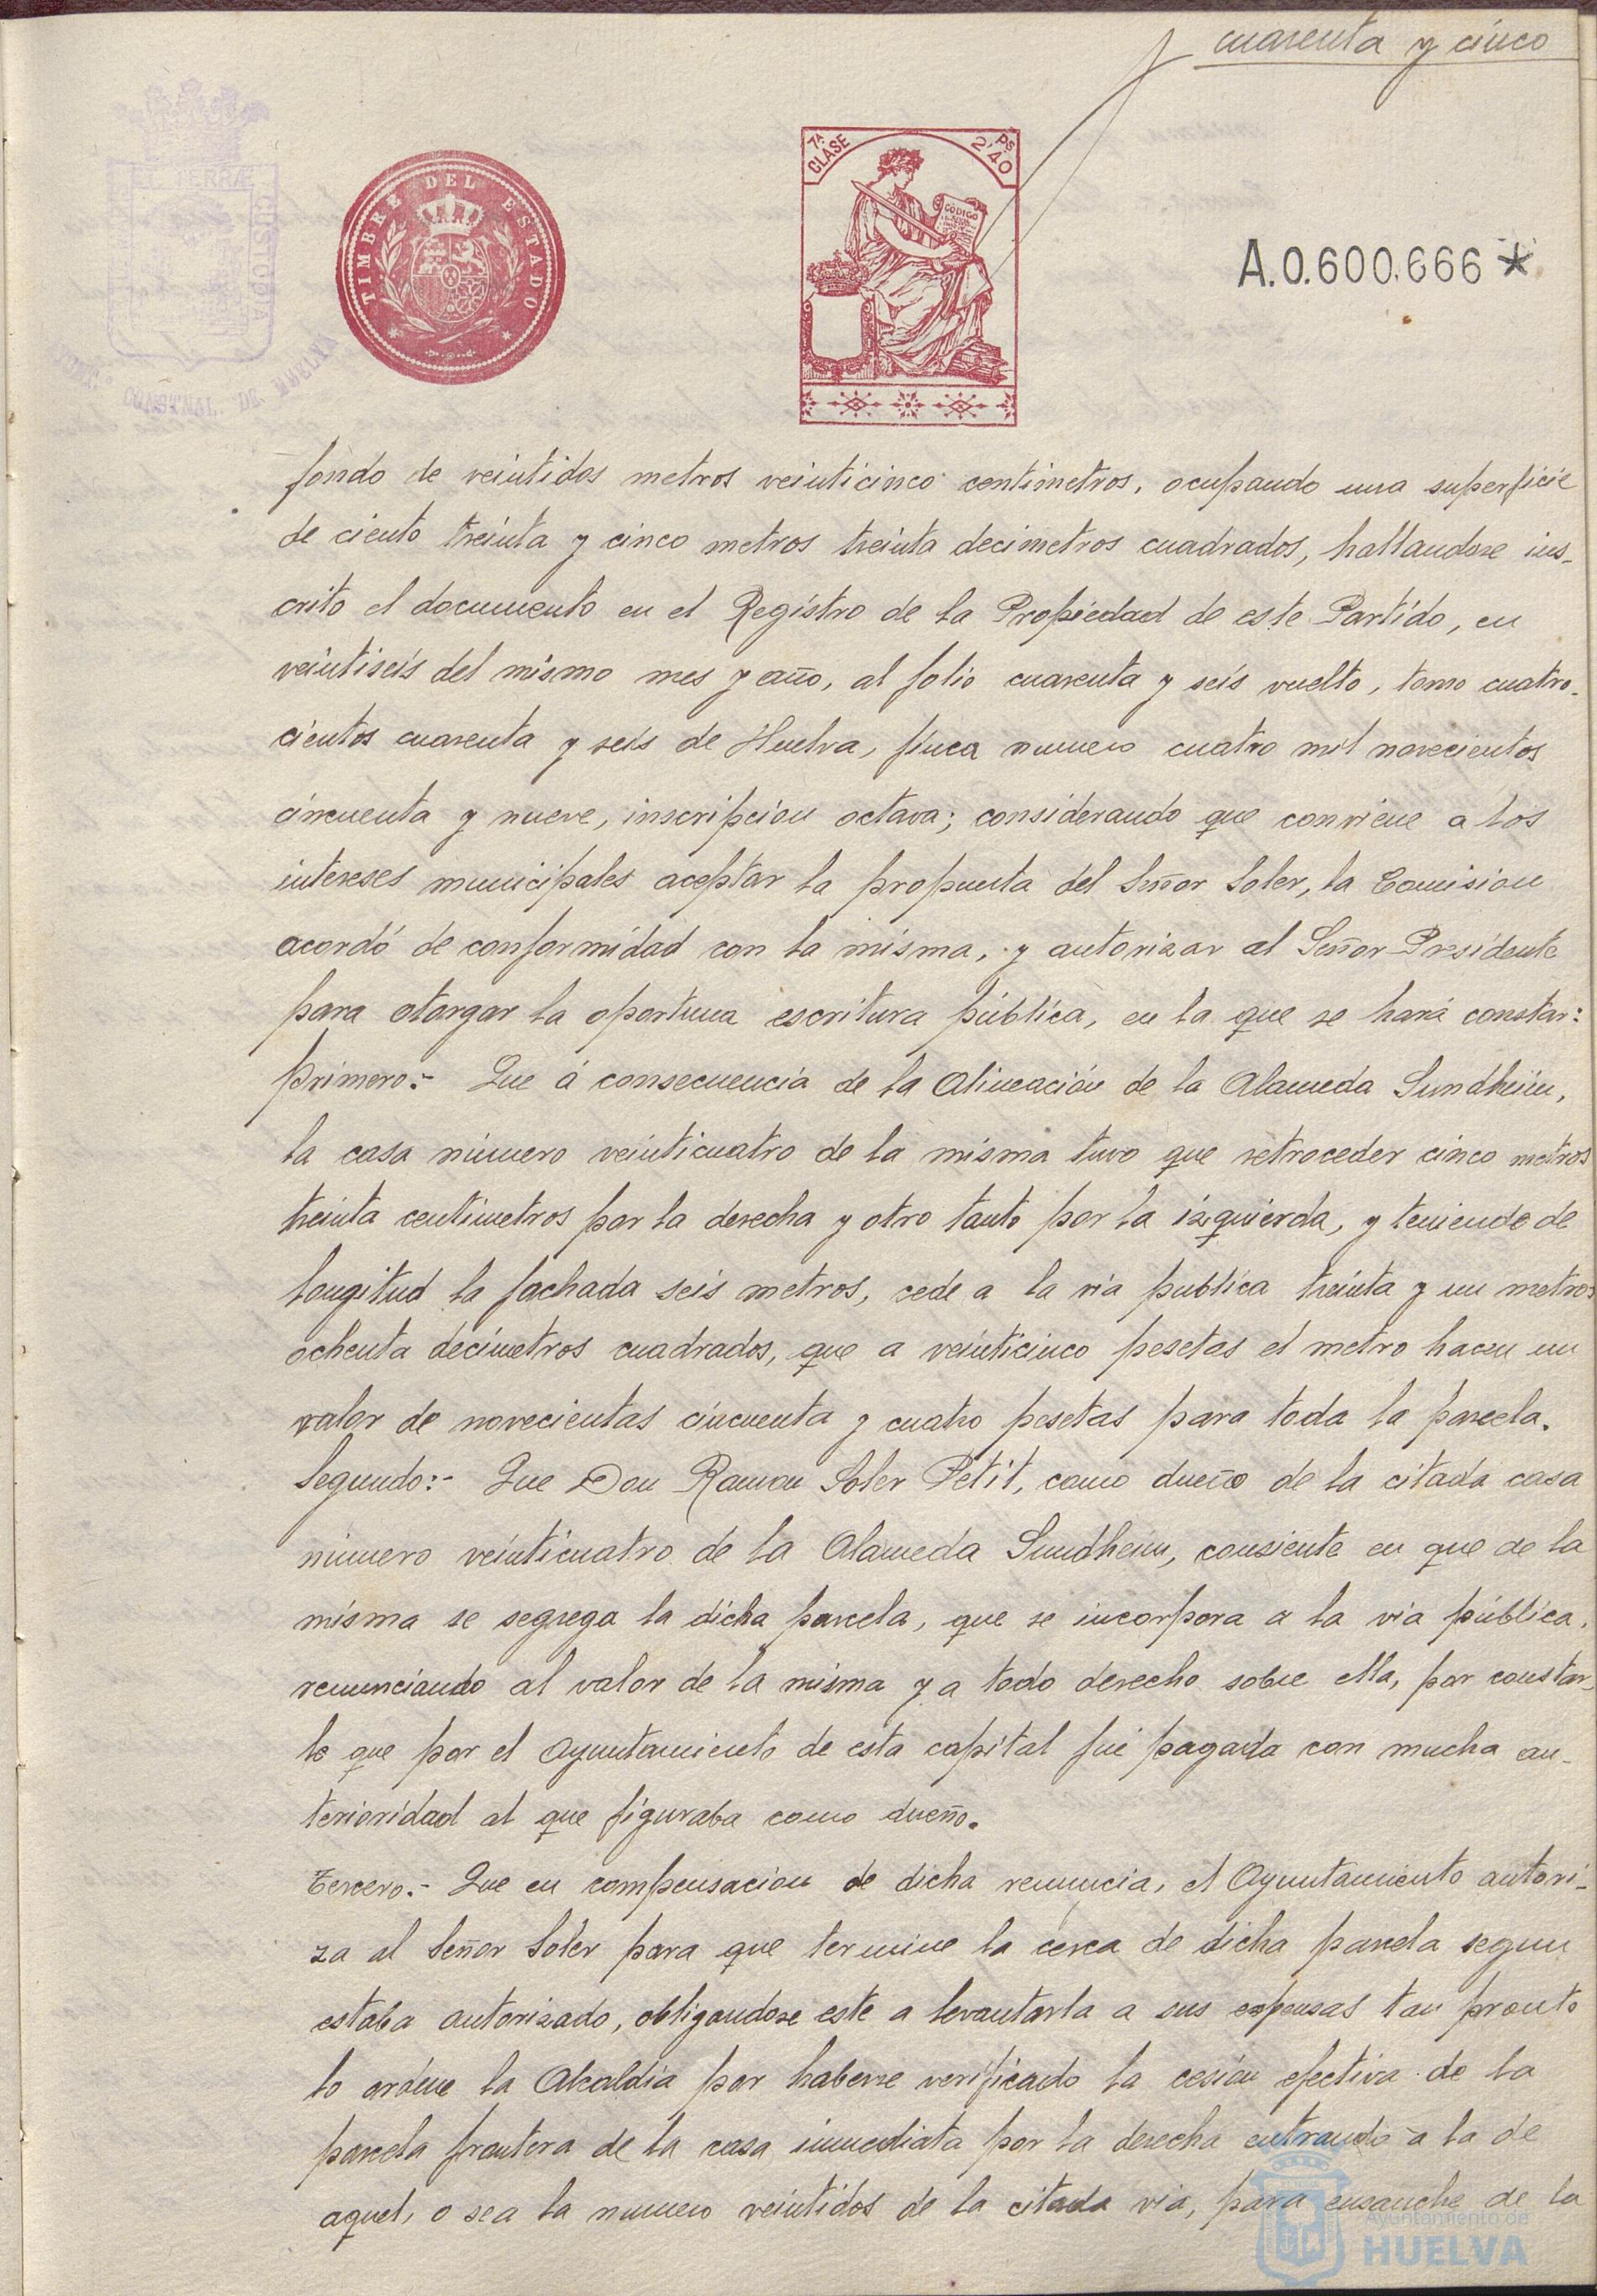 cuarenta y cinco
TIMBRE DEL ESTADO
7ª CLASE
Ps 2'40
CODIGO
A.0.600.666*
CUSTODIA
CONSTNAL. DE HUELVA
fondo de veintidos metros veinticinco centimetros, ocupando una superficie
de ciento treinta y cinco metros treinta decimetros cuadrados, hallandose ins-
crito el documento en el Registro de la Propiedad de este Partido, en
veintiseis del mismo mes y año, al folio cuarenta y seis vuelto, tomo cuatro-
cientos cuarenta y seis de Huelva, finca numero cuatro mil novecientos
cincuenta y nueve, inscripcion octava; considerando que conviene a los
intereses municipales aceptar la propuesta del Señor Soler, la Comision
acordó de conformidad con la misma, y autorizar al Señor Presidente
para otorgar la oportuna escritura pública, en la que se hará constar:
Primero:- Que á consecuencia de la Alineación de la Alameda Sundheim,
la casa número veinticuatro de la misma tuvo que retroceder cinco metros
treinta centimetros por la derecha y otro tanto por la izquierda, y teniendo de
longitud la fachada seis metros, cede a la via publica treinta y un metros
ochenta decimetros cuadrados, que a veinticinco pesetas el metro hacen un
valor de novecientas cincuenta y cuatro pesetas para toda la parcela.
Segundo:- Que Don Ramon Soler Petit, como dueño de la citada casa
número veinticuatro de la Alameda Sundheim, consiente en que de la
misma se segrega la dicha parcela, que se incorpora a la via pública,
renunciando al valor de la misma y a todo derecho sobre ella, por constar-
le que por el Ayuntamiento de esta capital fué pagada con mucha an-
terioridad al que figuraba como dueño.
Tercero.- Que en compensacion de dicha renuncia, el Ayuntamiento autori-
za al Señor Soler para que termine la cerca de dicha parcela segun
estaba autorizado, obligandose este a levantarla a sus expensas tan pronto
lo ordene la Alcaldia por haberse verificado la cesión efectiva de la
parcela frontera de la casa inmediata por la derecha entrando a la de
aquel, o sea la numero veintidos de la citada via, para ensanche de la
Ayuntamiento de
HUELVA